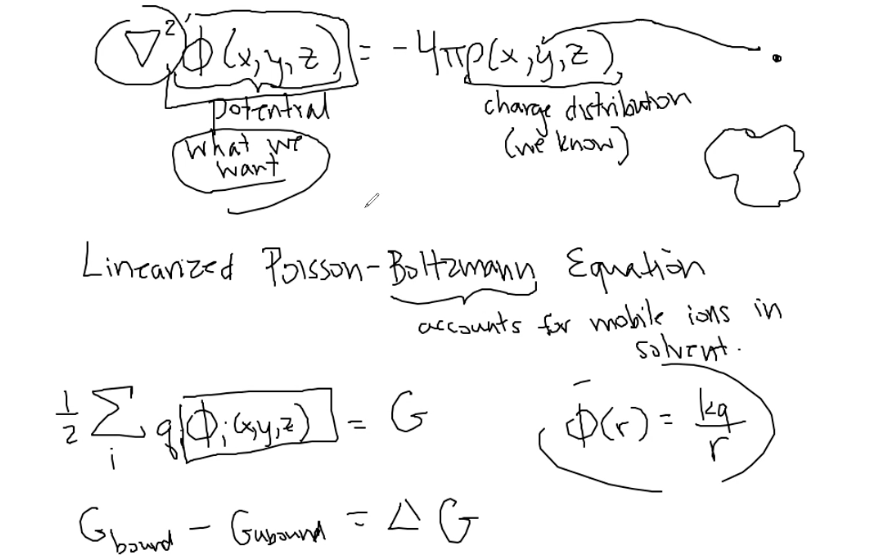 ∇² Φ(x,y,z) = -4πρ(x,y,z)
potential
charge distribution
(we know)
what we
want
Linearized Poisson-Boltzmann Equation
accounts for mobile ions in
solvent.
½ Σ_i q_i Φ_i(x,y,z) = G
Φ(r) = kq/r
G_bound - G_ubound = ΔG